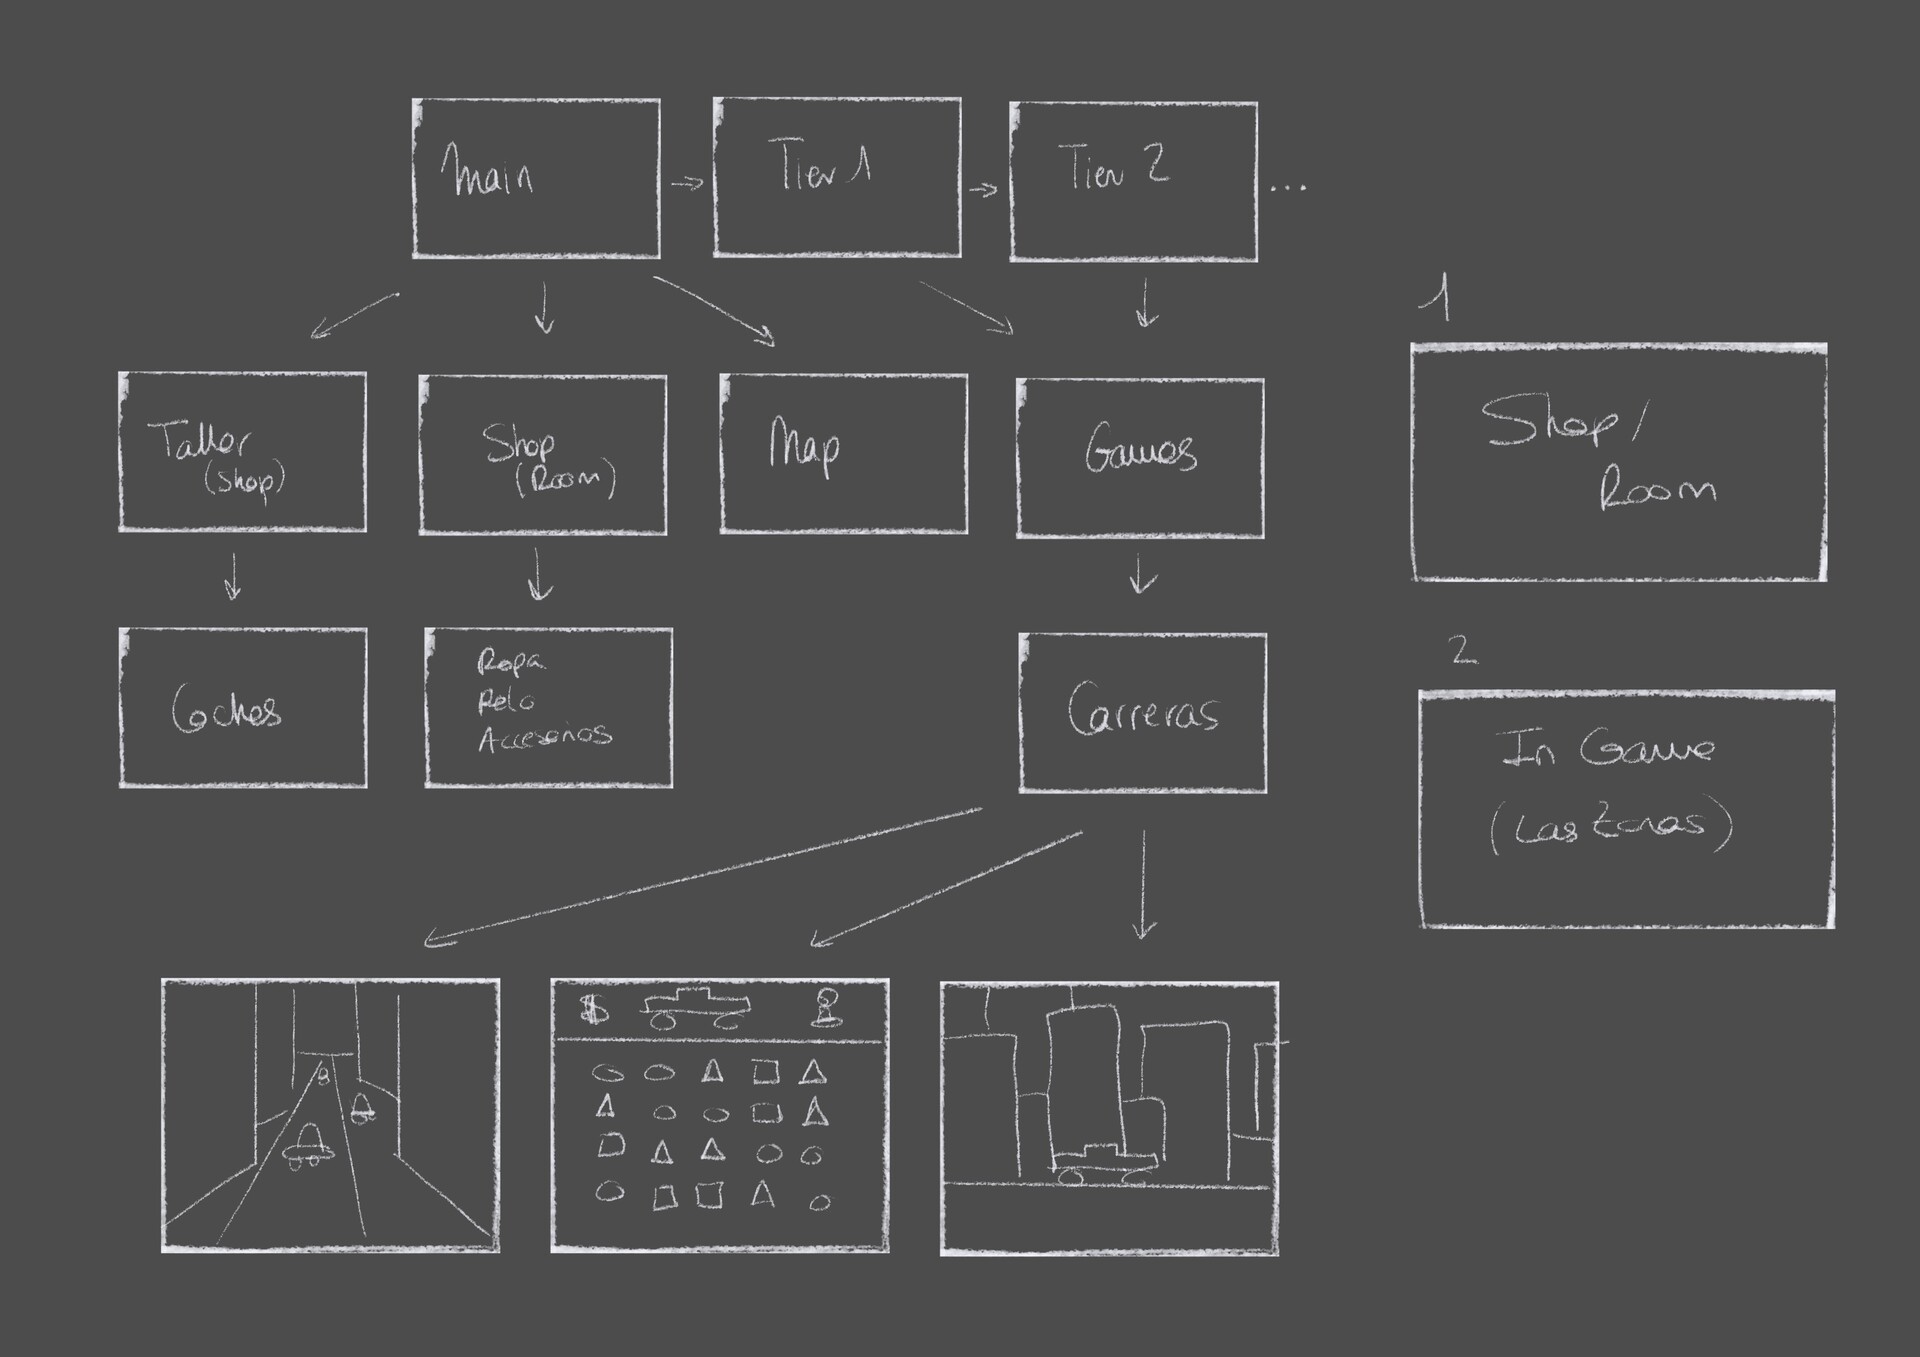 Main
Tier 1
Tier 2
...
1
Taller
(Shop)
Shop
(Room)
Map
Games
Shop/
Room
Coches
Ropa
Pelo
Accesorios
Carreras
2
In Game
(Las Zonas)
$